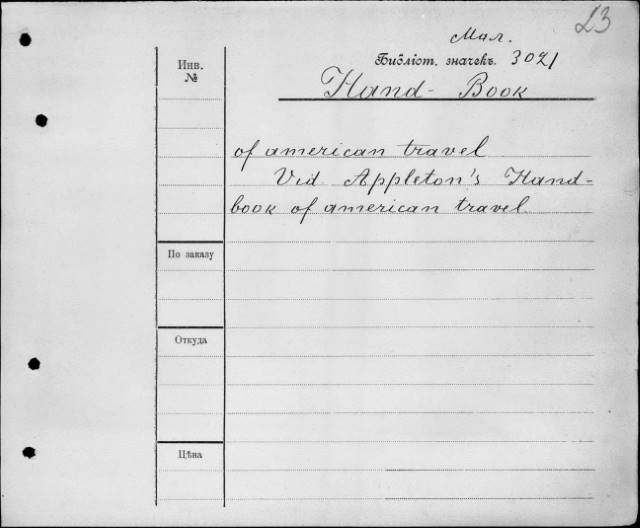 23
Мал.
Инв. №
Библіот. значекъ. 3021
Hand-Book
of american travel
Vid Appleton's Hand-
book of american travel
По заказу
Откуда
Цѣна